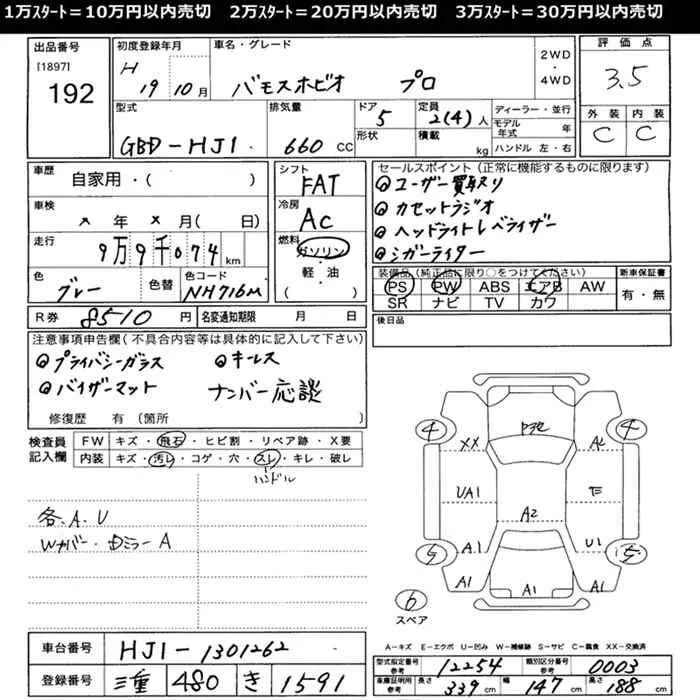 1万スタート=10万円以内売切　2万スタート=20万円以内売切　3万スタート=30万円以内売切
出品番号
[1897]
192
初度登録年月
H 19年 10月
車名・グレード
バモスホビオ　プロ
2WD・4WD
評価点
3.5
型式
GBD-HJ1
排気量
660 CC
ドア
5
形状
定員
2(4)人
積載
kg
ディーラー・並行
モデル年式　年
ハンドル 左・右
外装　内装
C　C
車歴
自家用・(　)
車検
年　月(　日)
走行
9万9千074 km
色
グレー
色替
色コード
NH716M
シフト
FAT
冷房
AC
燃料
ガソリン・軽・油
(　)
セールスポイント(正常に機能するものに限ります)
ユーザー買取り
カセットラジオ
ヘッドライトレベライザー
シガーライター
装備品(純正品に限り○をつけてください)
PS　PW　ABS　エアB　AW
SR　ナビ　TV　カワ
新車保証書
有・無
R券　8510円
名変通知期限　月　日
後日品
注意事項申告欄(不具合内容等は具体的に記入して下さい)
プライバシーガラス　キーレス
バイザーマット　ナンバー応談
修復歴　有(箇所　)
検査員記入欄
FW　キズ・飛石・ヒビ割・リペア跡・X要
内装　キズ・汚レ・コゲ・穴・スレ・キレ・破レ
ハンドル
各、A、U
Wカバー・
ミラーA
4　4
XX　A2
UA1　A2
A1　U1
5　5
A1　A1　A1
6
スペア
A-キズ　E-エクボ　U-凹み　W-補修跡　S-サビ　C-腐食　XX-交換済
車台番号　HJ1-1301262
登録番号　三重　480　き　1591
型式指定番号 参考　12254　類別区分番号 参考　0003
車庫証明用 参考　長さ 339cm　幅 147cm　高さ 188cm